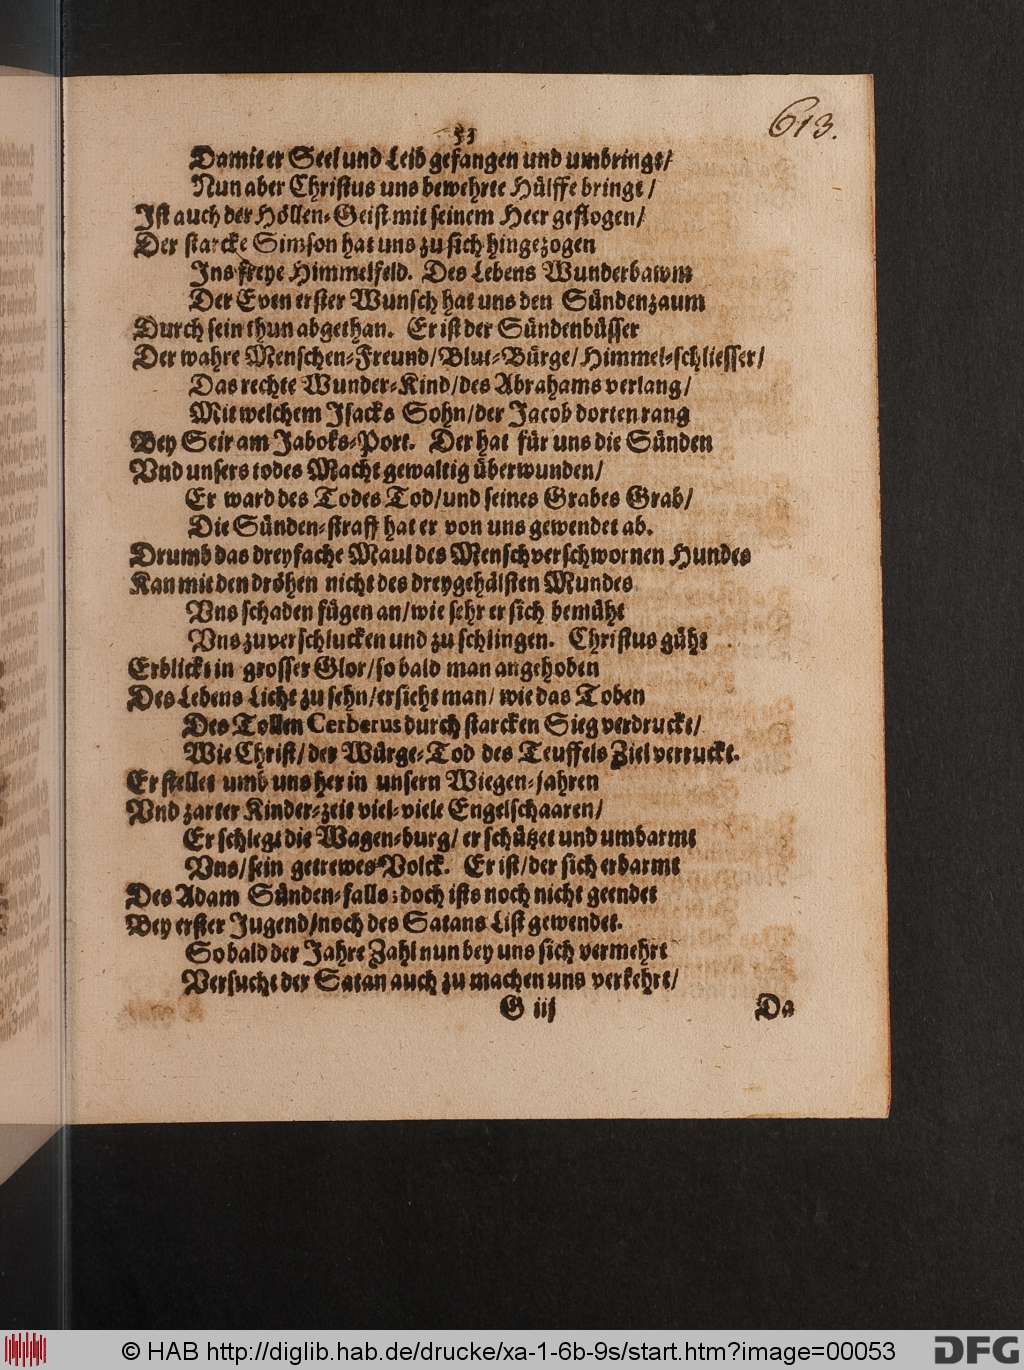 613.
53
Damit er Seel und Leib gefangen und umbringt/
Nun aber Christus uns bewehrte Hülffe bringt/
Ist auch der Höllen-Geist mit seinem Heer geflogen/
Der starcke Simson hat uns zu sich hingezogen
Ins freye Himmelfeld. Des Lebens Wunderbawm
Der Even erster Wunsch hat uns den Sündenzaum
Durch sein thun abgethan. Er ist der Sündenbüsser
Der wahre Menschen-Freund/Blut-Bürge/Himmel-schliesser/
Das rechte Wunder-Kind/des Abrahams verlang/
Mit welchem Isacks Sohn/der Jacob dorten rang
Bey Seir am Jaboks-Port. Der hat für uns die Sünden
Vnd unsers todes Macht gewaltig überwunden/
Er ward des Todes Tod/und seines Grabes Grab/
Die Sünden-straff hat er von uns gewendet ab.
Drumb das dreyfache Maul des Menschverschwornen Hundes
Kan mit den dröhen nicht des dreygehälsten Mundes
Vns schaden fügen an/wie sehr er sich bemüht
Vns zuverschlucken und zu schlingen. Christus güht
Erblickt in grosser Glor/so bald man angehoben
Des Lebens Licht zu sehn/ersieht man/wie das Toben
Des Tollen Cerberus durch starcken Sieg verdruckt/
Wie Christ/der Würge-Tod des Teuffels Ziel verruckt.
Er stellet umb uns her in unsern Wiegen-jahren
Vnd zarter Kinder-zeit viel-viele Engelschaaren/
Er schlegt die Wagen-burg/er schützet und umbarmt
Vns/sein getrewes Volck. Er ist/der sich erbarmt
Des Adam Sünden-falls; doch ists noch nicht geendet
Bey erster Jugend/noch des Satans List gewendet.
So bald der Jahre Zahl nun bey uns sich vermehrt
Versucht der Satan auch zu machen uns verkehrt/
G iij
Da
© HAB http://diglib.hab.de/drucke/xa-1-6b-9s/start.htm?image=00053
DFG